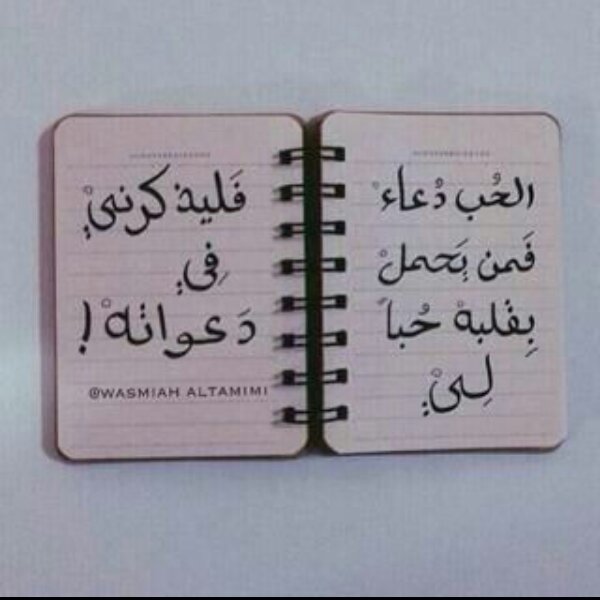 الحُب دُعاءْ
فَمن يَحملْ
بِقلبهْ حُباً
لِيْ
فَليذكرنيْ
فِي
دَعواتهْ!
@WASMIAH ALTAMIMI